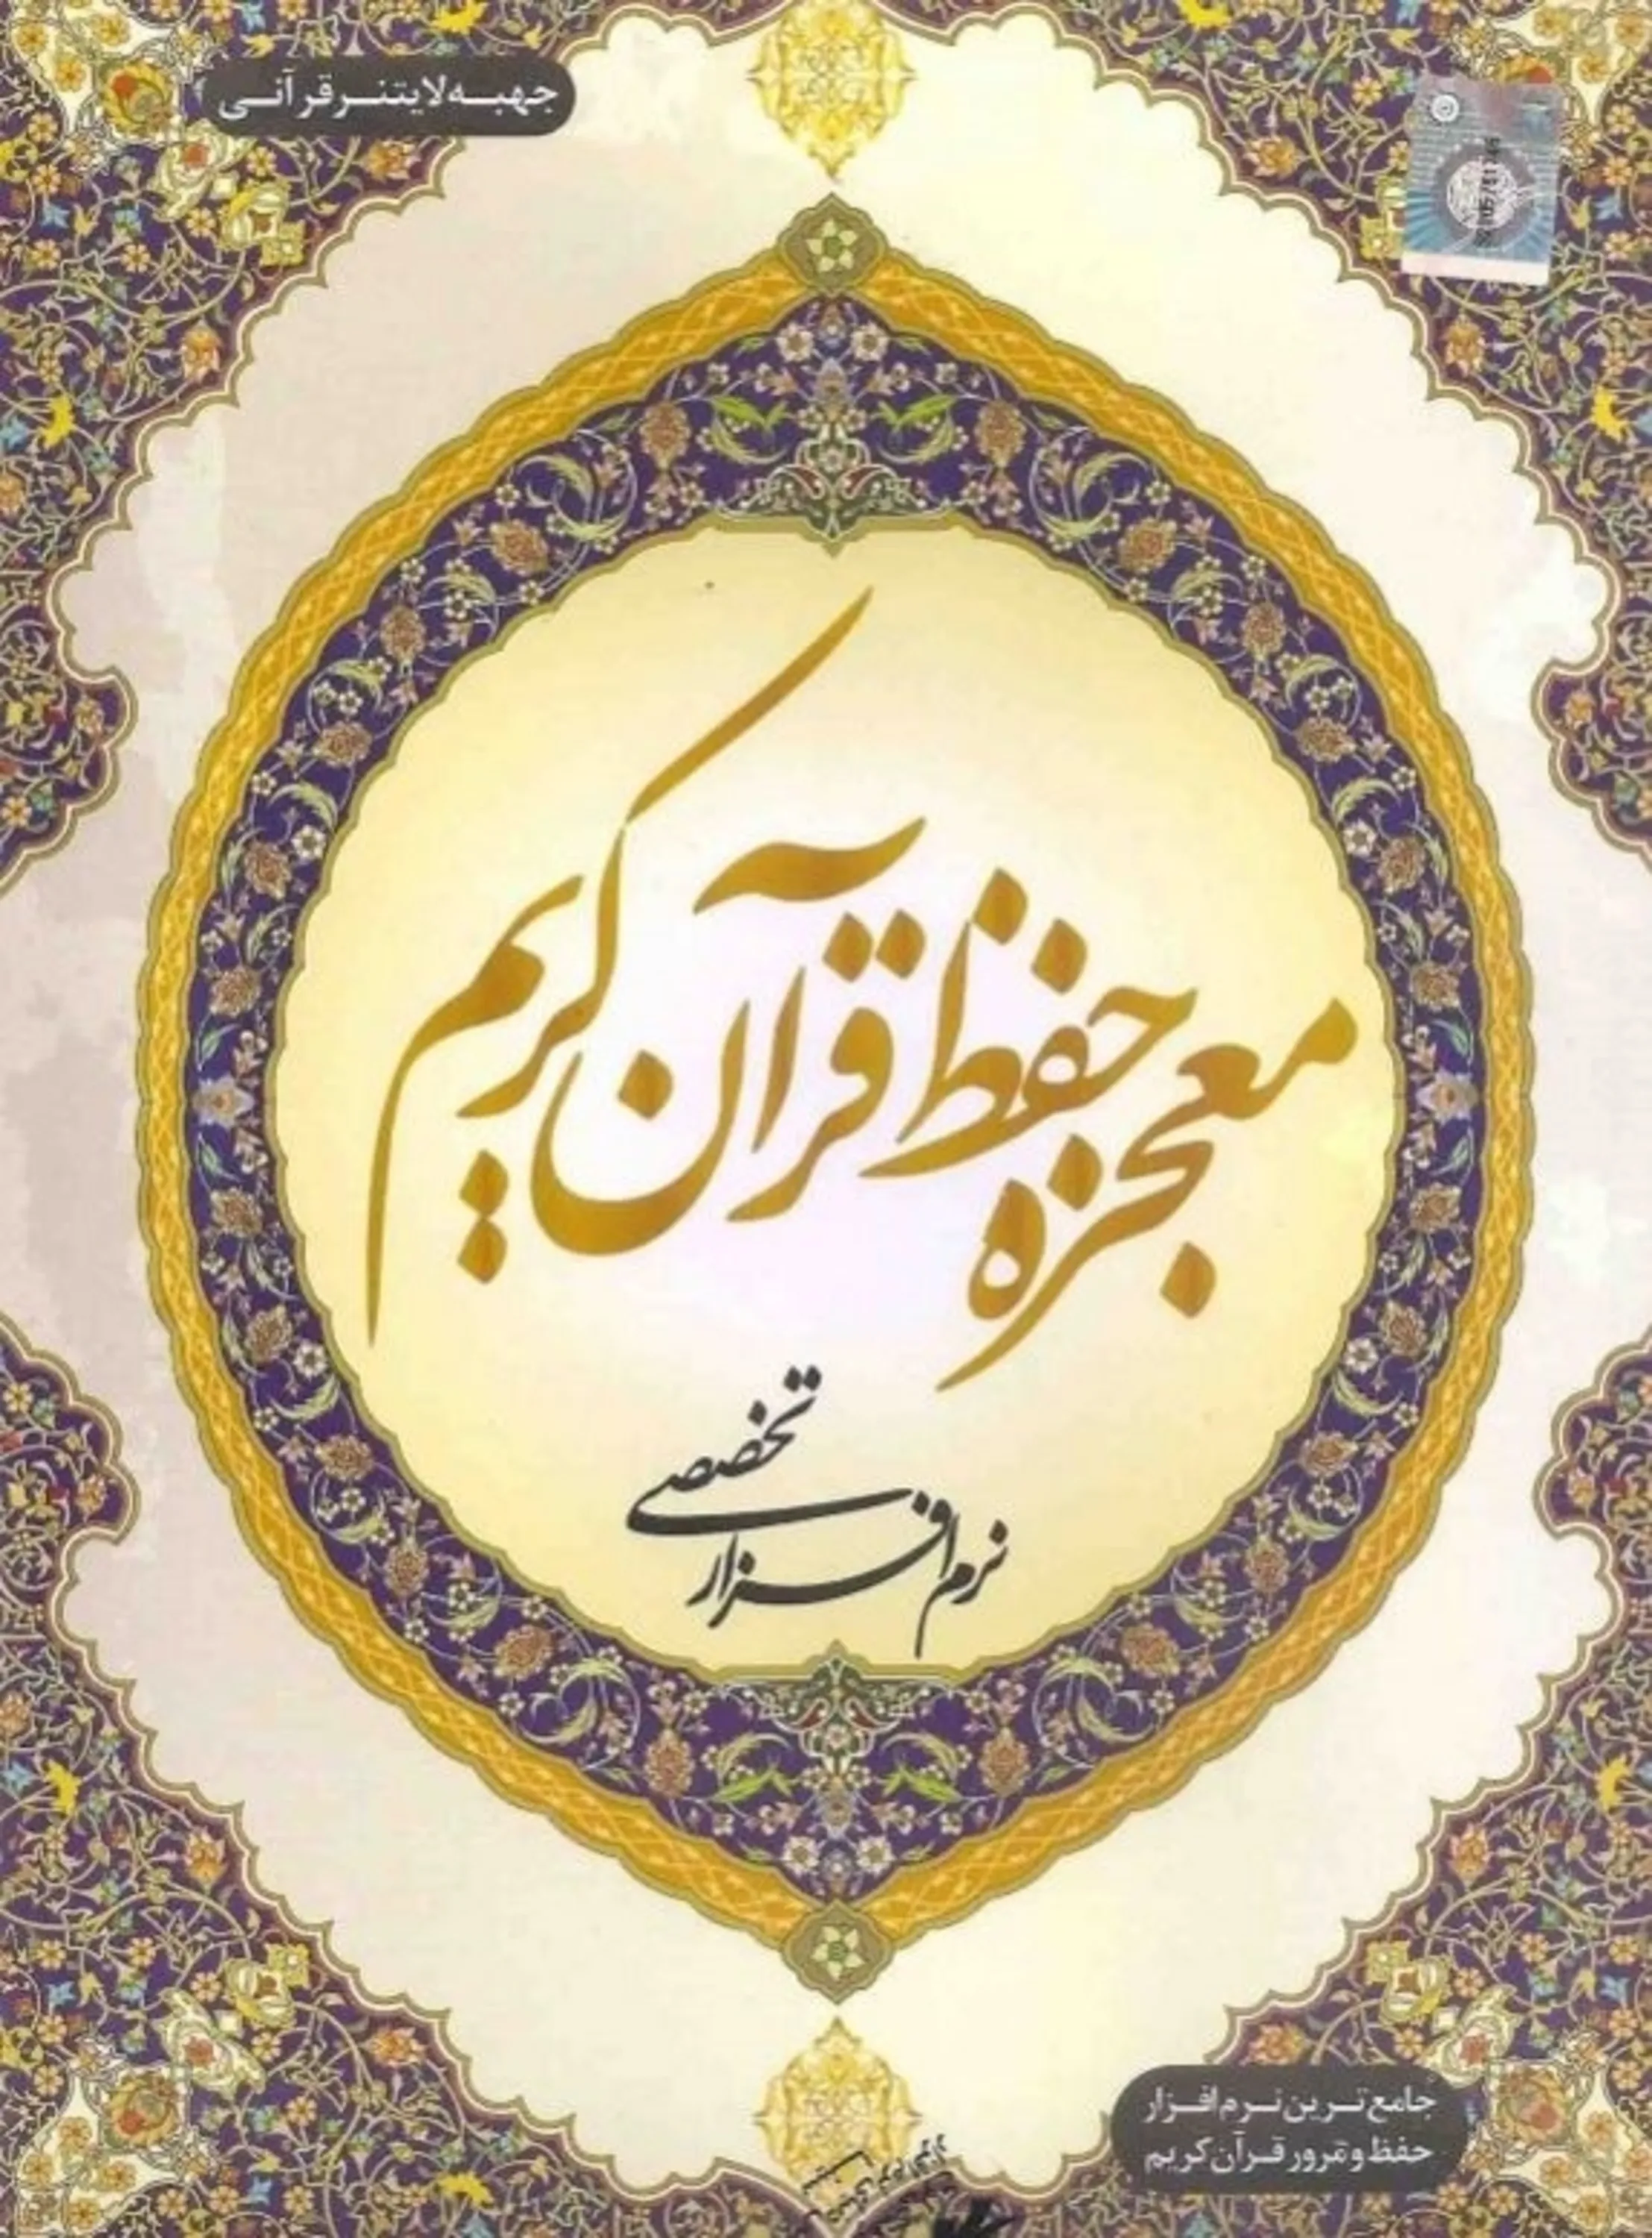 جهبه لایتنر قرآنی
معجزه حفظ قرآن کریم
نرم افزار تخصصی
جامع ترین نرم افزار
حفظ و مرور قرآن کریم